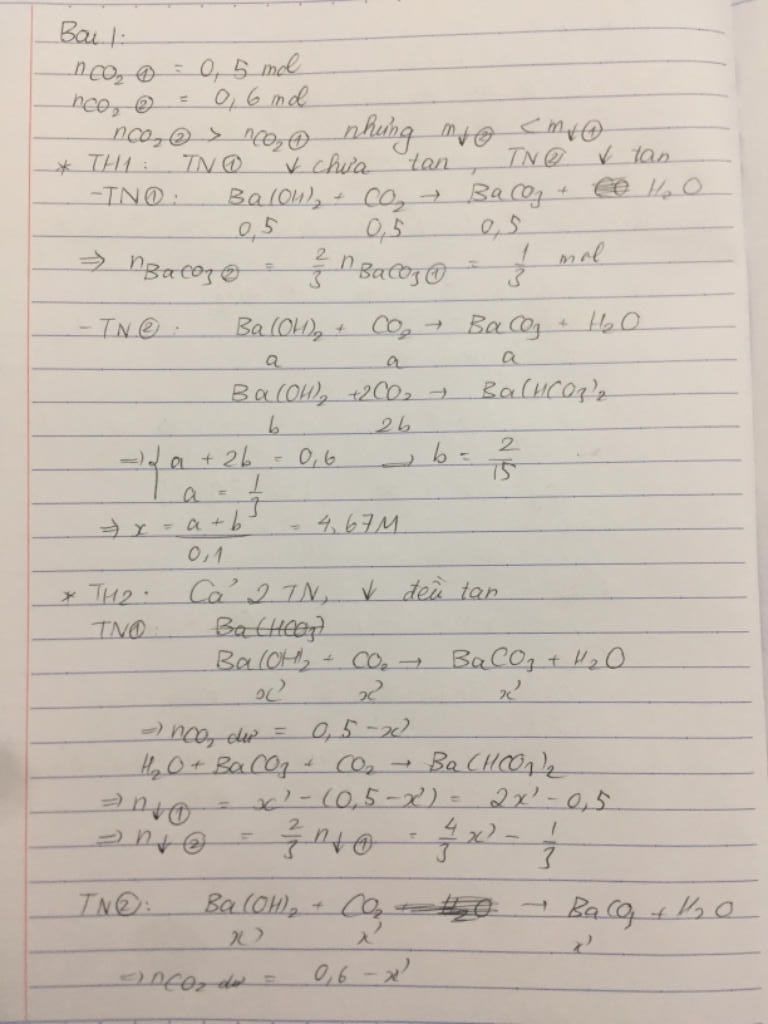 Bài 1:
nCO₂ ① = 0,5 mol
nCO₂ ② = 0,6 mol
nCO₂ ② > nCO₂ ① nhưng m↓② < m↓①
* TH1: TN① ↓ chưa tan, TN② ↓ tan
-TN①: Ba(OH)₂ + CO₂ → BaCO₃ + H₂O
0,5 0,5 0,5
⇒ nBaCO₃② = 2/3 nBaCO₃① = 1/3 mol
-TN②: Ba(OH)₂ + CO₂ → BaCO₃ + H₂O
a a a
Ba(OH)₂ +2CO₂ → Ba(HCO₃)₂
b 2b
⇒ { a + 2b = 0,6 → b = 2/15
a = 1/3
⇒ x = (a + b)/0,1 = 4,67M
* TH2: Cả 2 TN, ↓ đều tan
TN① Ba(HCO₃)
Ba(OH)₂ + CO₂ → BaCO₃ + H₂O
x' x' x'
⇒ nCO₂ dư = 0,5 - x'
H₂O + BaCO₃ + CO₂ → Ba(HCO₃)₂
⇒ n↓① = x' - (0,5 - x') = 2x' - 0,5
⇒ n↓② = 2/3 n↓① = 4/3 x' - 1/3
TN②: Ba(OH)₂ + CO₂ + H₂O → BaCO₃ + H₂O
x' x' x'
⇒ nCO₂ dư = 0,6 - x'